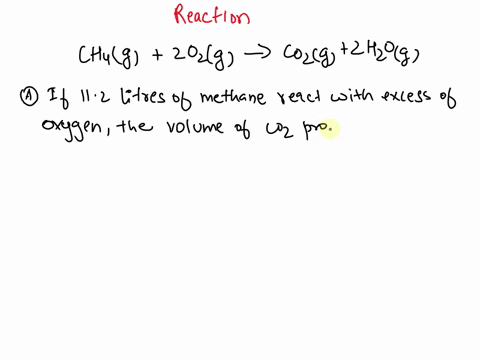 Reaction
CH4(g) + 2O2(g) → CO2(g) + 2H2O(g)
(A) If 11.2 litres of methane react with excess of
oxygen, the volume of CO2 pro.